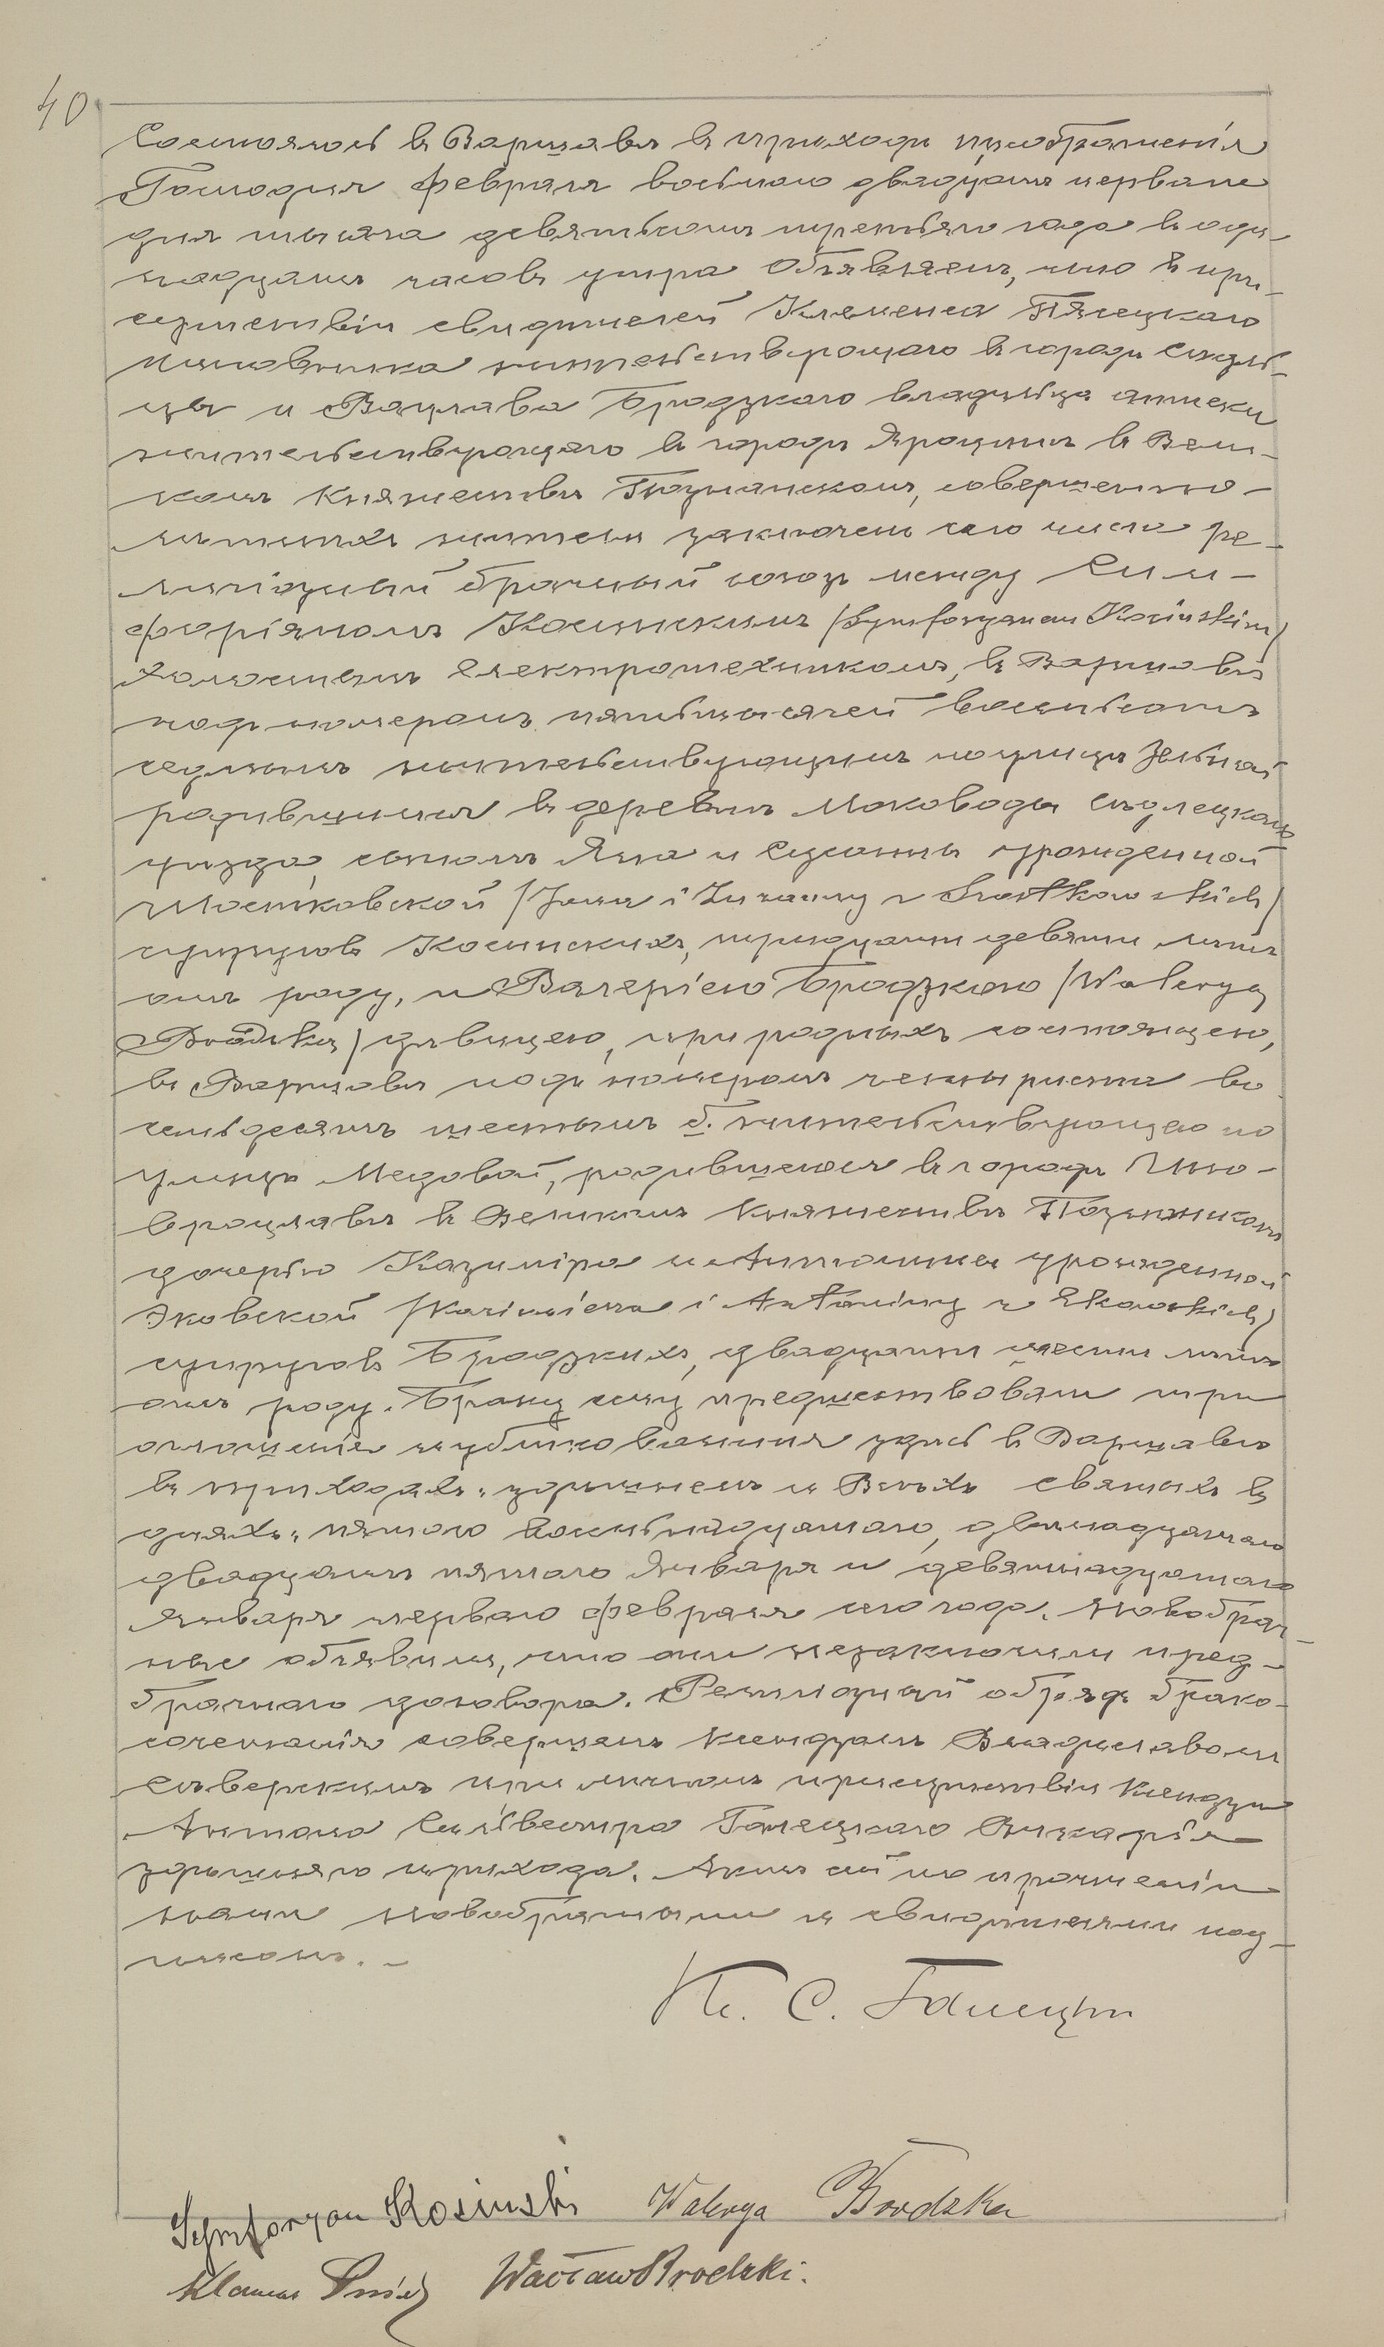 40
Состоялось въ Варшавѣ въ приходѣ преображенія
Господня февраля восьмого двадцать перваго
дня тысяча девятьсотъ третьяго года въ оди-
надцать часовъ утра. Объявляемъ, что въ при-
сутствіи свидѣтелей Клеменса
чиновника жительствующаго въ городѣ
и Вацлава Бродзкаго владѣльца аптеки
жительствующаго въ городѣ Яроцинѣ въ Вели-
комъ Княжествѣ Познанскомъ, совершенно-
лѣтнихъ заключенъ сего числа ре-
лигіозный брачный союзъ между Сим-
форіяномъ Косинскимъ /Symforyanem Kosińskim/
холостымъ електротехникомъ, въ Варшавѣ
подъ номеромъ пятьтысячей восемьсотъ
седмымъ жительствующимъ по улицѣ Зельной
родившимся въ деревнѣ Маководы Сѣдлецкаго
уѣзда, сыномъ Яна и Сузанны урожденной
/Jana i Zuzanny z /
супруговъ Косинскихъ, тридцати девяти лѣтъ
отъ роду, и Валеріею Бродзкою /Waleryą
Brodzką/ дѣвицею, при родныхъ состоящею,
въ Варшавѣ подъ номеромъ четыреста во
семьдесятъ шестымъ б. жительствующею по
улицѣ Медовой, родившеюся въ городѣ Ино-
вроцлавѣ въ Великомъ Княжествѣ Познанскомъ
дочерью Казиміра и Антонины урожденной
Эковской /Kazimierza i Antoniny z Ekowskich/
супруговъ Бродзкихъ, двадцати шести лѣтъ
отъ роду. Браку сему предшествовали три
оглашенія публикованныя здѣсь въ Варшавѣ
въ приходахъ: здѣшнемъ и Всѣхъ святыхъ въ
дняхъ: пятаго восьмнадцатаго, двѣнадцатаго
двадцать пятаго Января и девятнадцатаго
Января перваго февраля сего года. Новобрач-
ные объявили, что они незаключили пред-
брачнаго договора. Религіозный обрядъ брако-
сочетанія совершенъ Ксендзомъ Владиславомъ
Сѣверскимъ при личномъ присутствіи Ксендза
Антона Сильвестра Галецкаго Викарія
здѣшняго прихода. Актъ сей по прочтеніи
нами новобрачными и свидѣтелями под-
писанъ. -
Кс. С. Галецкій
Symforyan Kosiński Walerya Brodzka
Klemens Wacław Brodzki.